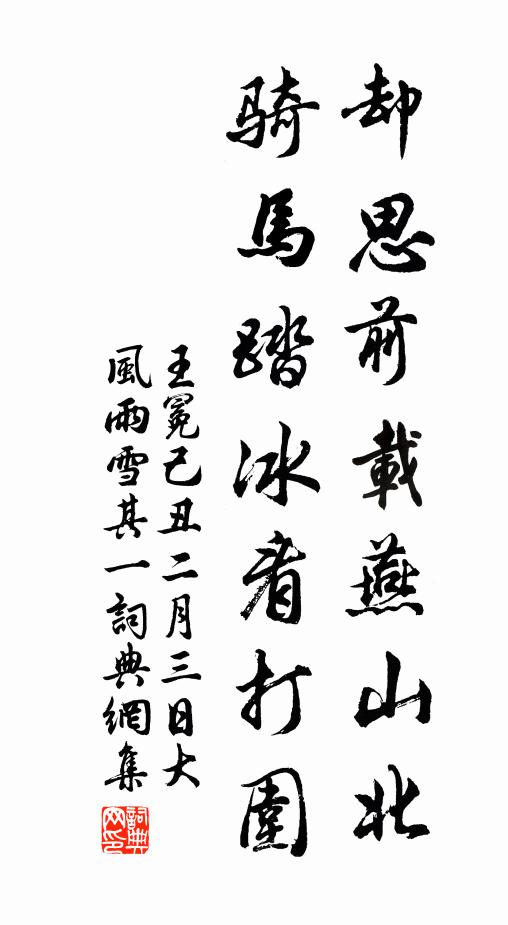 却思前載燕山北
騎馬踏冰看打圍
王冕己丑二月三日大
風雨雪其一詞典網集
詞典網印